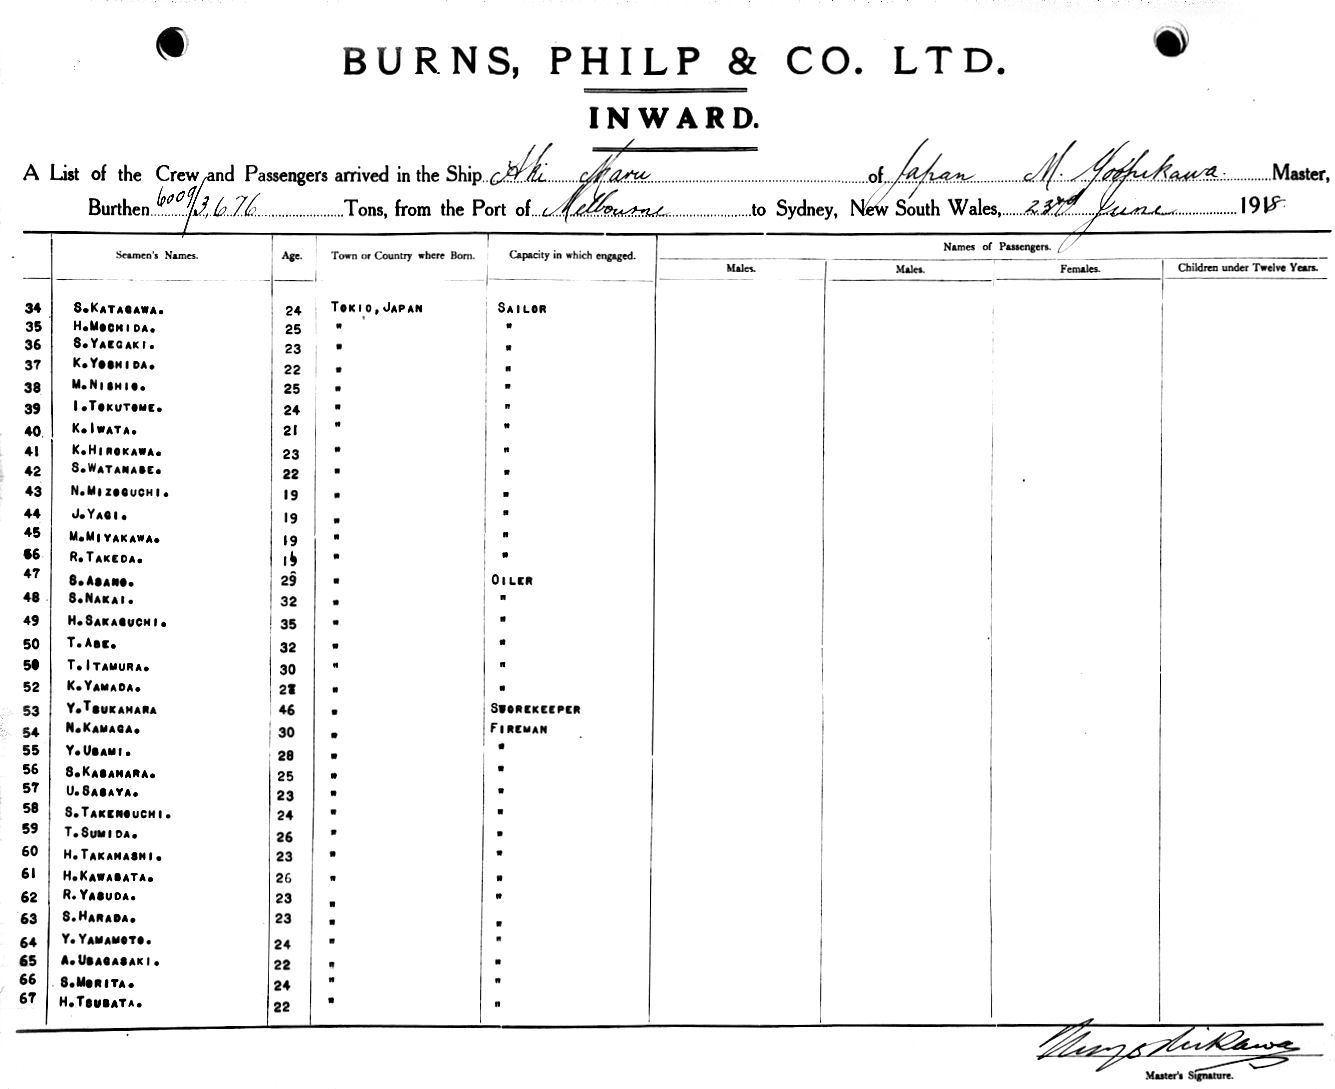 BURNS, PHILP & CO. LTD.
INWARD.
A List of the Crew and Passengers arrived in the Ship Aki Maru of Japan M. Yoshikawa Master,
Burthen 6009/3,676 Tons, from the Port of Melbourne to Sydney, New South Wales, 23rd June 1918
Names of Passengers.
Seamen's Names. Age. Town or Country where Born. Capacity in which engaged.
Males. Males. Females. Children under Twelve Years.
34 S.KATAGAWA. 24 TOKIO,JAPAN SAILOR
35 H.MOCHIDA. 25 " "
36 S.YAEGAKI. 23 " "
37 K.YOSHIDA. 22 " "
38 M.NISHIO. 25 " "
39 I.TOKUTOME. 24 " "
40 K.IWATA. 21 " "
41 K.HIROKAWA. 23 " "
42 S.WATANABE. 22 " "
43 N.MIZOGUCHI. 19 " "
44 J.YAGI. 19 " "
45 M.MIYAKAWA. 19 " "
66 R.TAKEDA. " "
47 S.ASANO. 29 " OILER
48 S.NAKAI. 32 " "
49 H.SAKAGUCHI. 35 " "
50 T.ABE. 32 " "
50 T.ITAMURA. 30 " "
52 K.YAMADA. " "
53 Y.TSUKAHARA 46 " STOREKEEPER
54 N.KAMAGA. 30 " FIREMAN
55 Y.USAMI. 28 " "
56 S.KASAHARA. 25 " "
57 U.SASAYA. 23 " "
58 S.TAKENOUCHI. 24 " "
59 T.SUMIDA. 26 " "
60 H.TAKAHASHI. 23 " "
61 H.KAWABATA. 26 " "
62 R.YASUDA. 23 " "
63 S.HARADA. 23 " "
64 Y.YAMAMOTO. 24 " "
65 A.USAGASAKI. 22 " "
66 S.MORITA. 24 " "
67 H.TSUBATA. 22 " "
M Yoshikawa
Master's Signature.